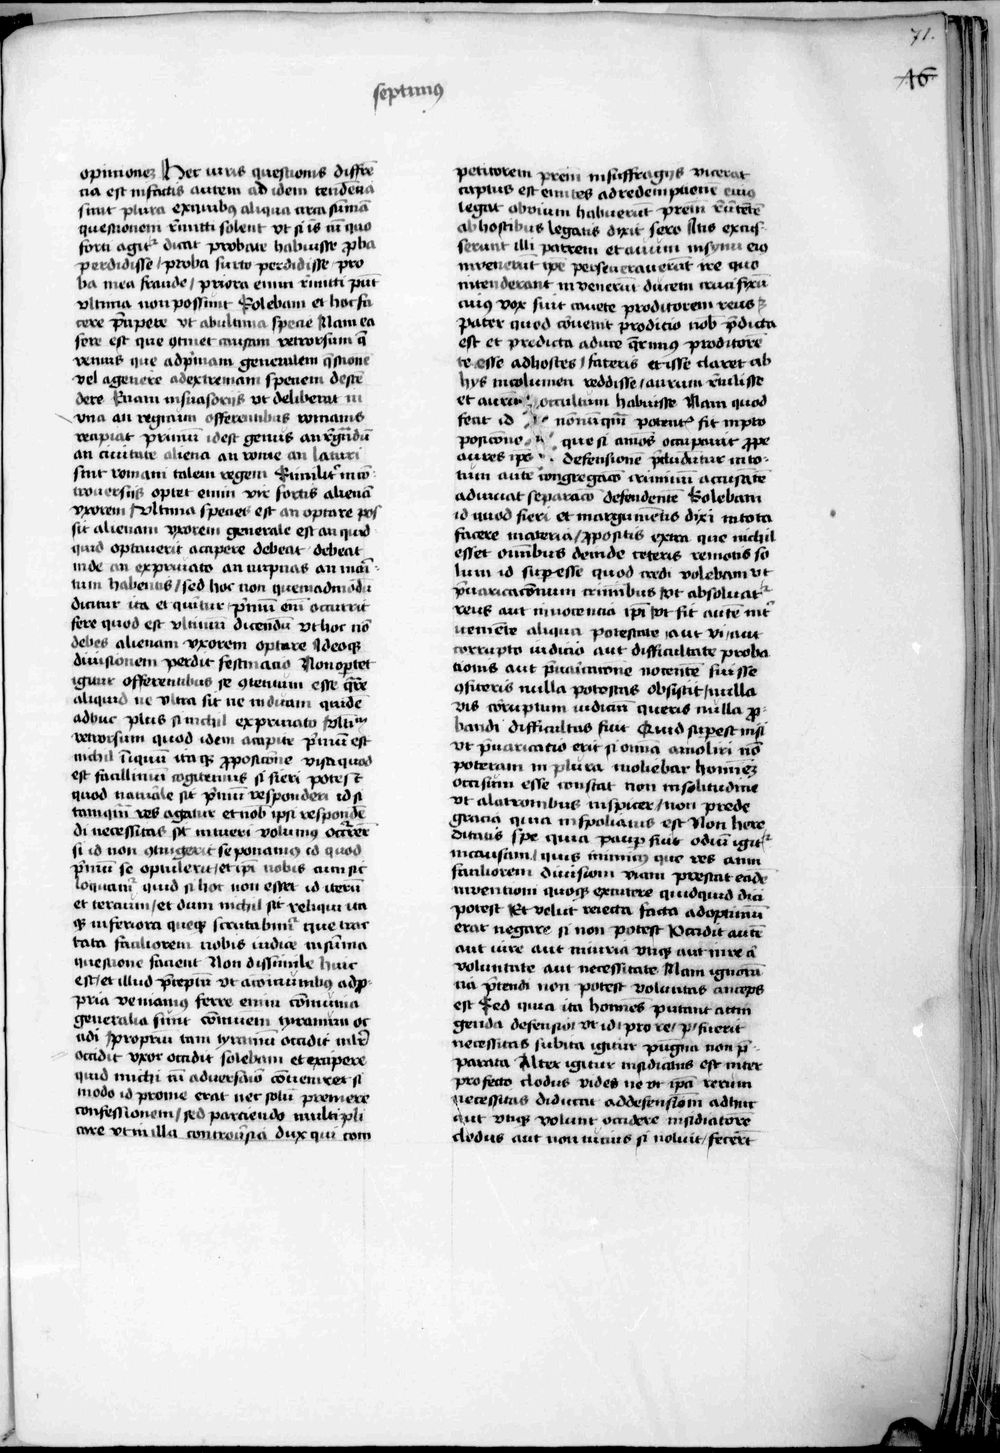 71.
46
septimus
opinionez Hec iuris questionis differē
cia est in factis autem ad idem tendencia
sunt plura ex quibus aliqua circa sūmam
questionem rīmitti solent vt si is cū quo
forti agitur dicat probate habuisse proba
perdidisse / proba furto perdidisse / pro
ba mea fraude / priora enim rimitti pn̄t
vltima non possunt Solebam et hoc fa
cere p̄cipere vt ab vltima specie Nam ea
fere est que continet causam retrorsum q̄
rentis que ad primam generalem q̄stione
vel a genere ad extremam speciem desce
dere Etiam in suasoriis vt deliberat nu
vna an regnum offerentibus romanis
recipiat primū id est genus an regnādū
an ciuitate aliena an rome an laturi
sint romani talem regem Similiter in cō
trouersiis optet enim vir fortis alienā
vxorem / Vltima species est an optare pos
sit alienam vxorem generale est an quid
quid optauerit accipere debeat / debeat
inde an ex priuato an nuptias an mari
tum habentis / sed hoc non quemadmodū
dicitur ita et queritur / primū enī occurrit
fere quod est vltimū dicendū vt hoc nō
debes alienam vxorem optare Ideoque
diuisionem perdit festinacio Non oportet
igitur offerentibus se contentum esse q̄re
aliquid ne vltra sit ne viduam quidē
adhuc plus si nichil ex priuato vltimū
retrorsum quod idem a capite primū est
nichil iniquū itaque proposicione visa quod
est facillimū cogitemus si fieri potest
quod naturale sit primū responderi id si
tamquam res agatur et nobis ipsi respondē
di necessitas sit intueri volumus occurret
si id non contigerit seponamus id quod
primū se optulerit / et ipi nobis cum sic
loquamur quid si hoc non esset id iterū
et tercium / et dum nichil sit reliqui ita
que inferiora queque scrutabimur que trac
tata faciliorem nobis iudice in sūma
questione facient Non dissimile huic
est / et illud p̄ceptū vt a cōmunibus ad pro
pria veniamus ferre enim cōmunia
generalia sunt cōmunem tyrannum oc
cidi / proprium tam tyrannū occidit mulier
occidit vxor occidit solebam et excipere
quid michi cū aduersario cōueniret si
modo id pro me erat nec solū premere
confessionem / sed parciendo multipli
care vt in illa controuersia dux qui com
petitorem prem in suffragiis vicerat
captus est euntes ad redemptione eius
legati obuium habuerunt prem reuertētē
ab hostibus legatis dixit sero itis excus
serunt illi patrem et aurum in synu eius
inuenerūt ipe perseuerauerūt ire quo
intenderant inuenerūt ducem crucifixū
cuius vox fuit cauete proditorem reus
pater quod cōuenit prodicio nob p̄dicta
est et predicta a duce q̄rimus proditorē
te esse ad hostes / fateris et isse clam et ab
hys incolumen reddisse / aurum retulisse
et aurū occultum habuisse Nam quod
fecit id nonnumquam potentius fit in pro
posicione que si animos occupauit prope
aures ipe defensione precluduntur in to
tum autē congregacō criminū accusātē
adiuuat separacō defendentē Solebam
id quod fieri et in argumentis dixi in tota
facere materia / propositis extra que nichil
esset omnibus deinde ceteris remotis so
lum id superesse quod credi volebam vt
p̄uaricacionum crimibus vt absoluatur
reus aut innocencia ipi vt fit autē int
ueniēte aliqua potestate aut vi / aut
corrupto iudicio aut difficultate proba
tionis aut p̄uaricacione nocentē fuisse
cōfiteris nulla potestas obsistit / nulla
vis corruptum iudiciū queris nulla pro
bandi difficultas fuit Quid superest nisi
vt p̄uaricatio erit si omīa amoliri nō
poteram in plura moliebar hominez
occisum esse constat non in solitudine
vt a latronibus inspicer / non prede
gracia quia inspoliatus est Non here
ditatis spe quia pauper fuit odiū igitur
in causam / quis inimicus que res cum
faciliorem diuisioni viam prestat eadē
inuentioni quoque excutere quidquid dici
potest Et velut reiecta facta ad optimū
erat negare si non potest Occidit autē
aut iure aut iniuria vtique aut inre ā
voluntate aut necessitate Nam ignorā
tia p̄tendi non potest voluntas anceps
est Sed quia ita homines putant attin
genda defensioi vt id pro re / p / fuerit
necessitas subita igitur pugna non p̄
parata Alter igitur insidiatus est inter
profecto clodus vides ne vt ipā rerum
necessitas diducat ad defensionē adhuc
aut vtique voluit occidere insidiatorē
clodus aut non tutius si noluit / fecert